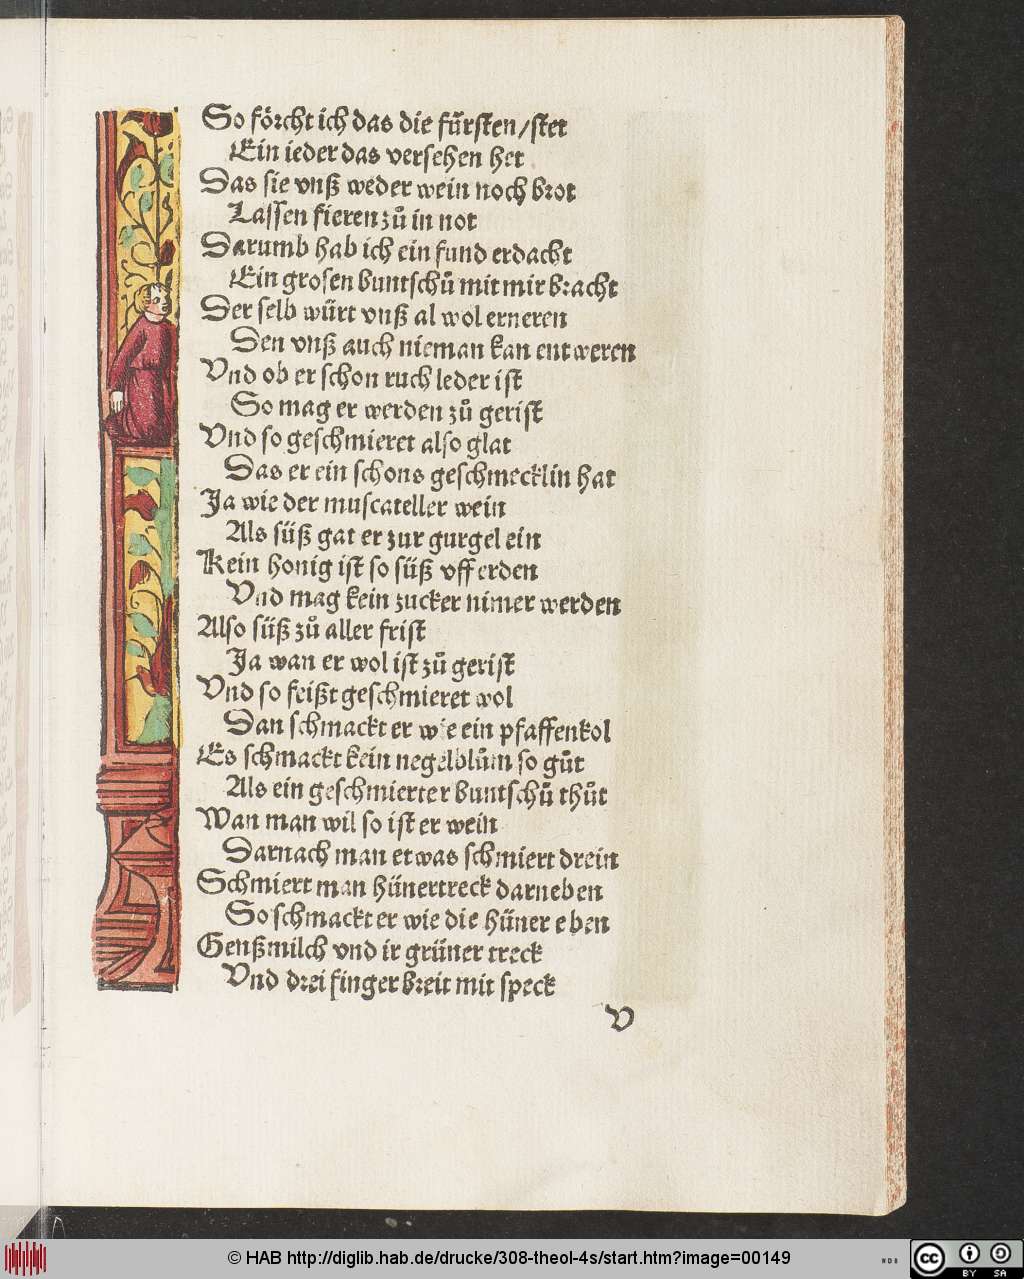 So förcht ich das die fürsten/stet
Ein ieder das versehen het
Das sie vnß weder wein noch brot
Lassen fieren zů in not
Darumb hab ich ein fund erdacht
Ein grosen buntschů mit mir bracht
Der selb würt vnß al wol erneren
Den vnß auch nieman kan entweren
Vnd ob er schon ruch leder ist
So mag er werden zů gerist
Vnd so geschmieret also glat
Das er ein schons geschmecklin hat
Ja wie der muscateller wein
Als süß gat er zur gurgel ein
Kein honig ist so süß vff erden
Vnd mag kein zucker nimer werden
Also süß zů aller frist
Ja wan er wol ist zů gerist
Vnd so feißt geschmieret wol
Dan schmackt er wie ein pfaffenkol
Es schmackt kein negelblům so gůt
Als ein geschmierter buntschů thůt
Wan man wil so ist er wein
Darnach man etwas schmiert drein
Schmiert man hünertreck darneben
So schmackt er wie die hüner eben
Genßmilch vnd ir grüner treck
Vnd drei finger breit mit speck
V
© HAB http://diglib.hab.de/drucke/308-theol-4s/start.htm?image=00149
WDB
cc
BY SA